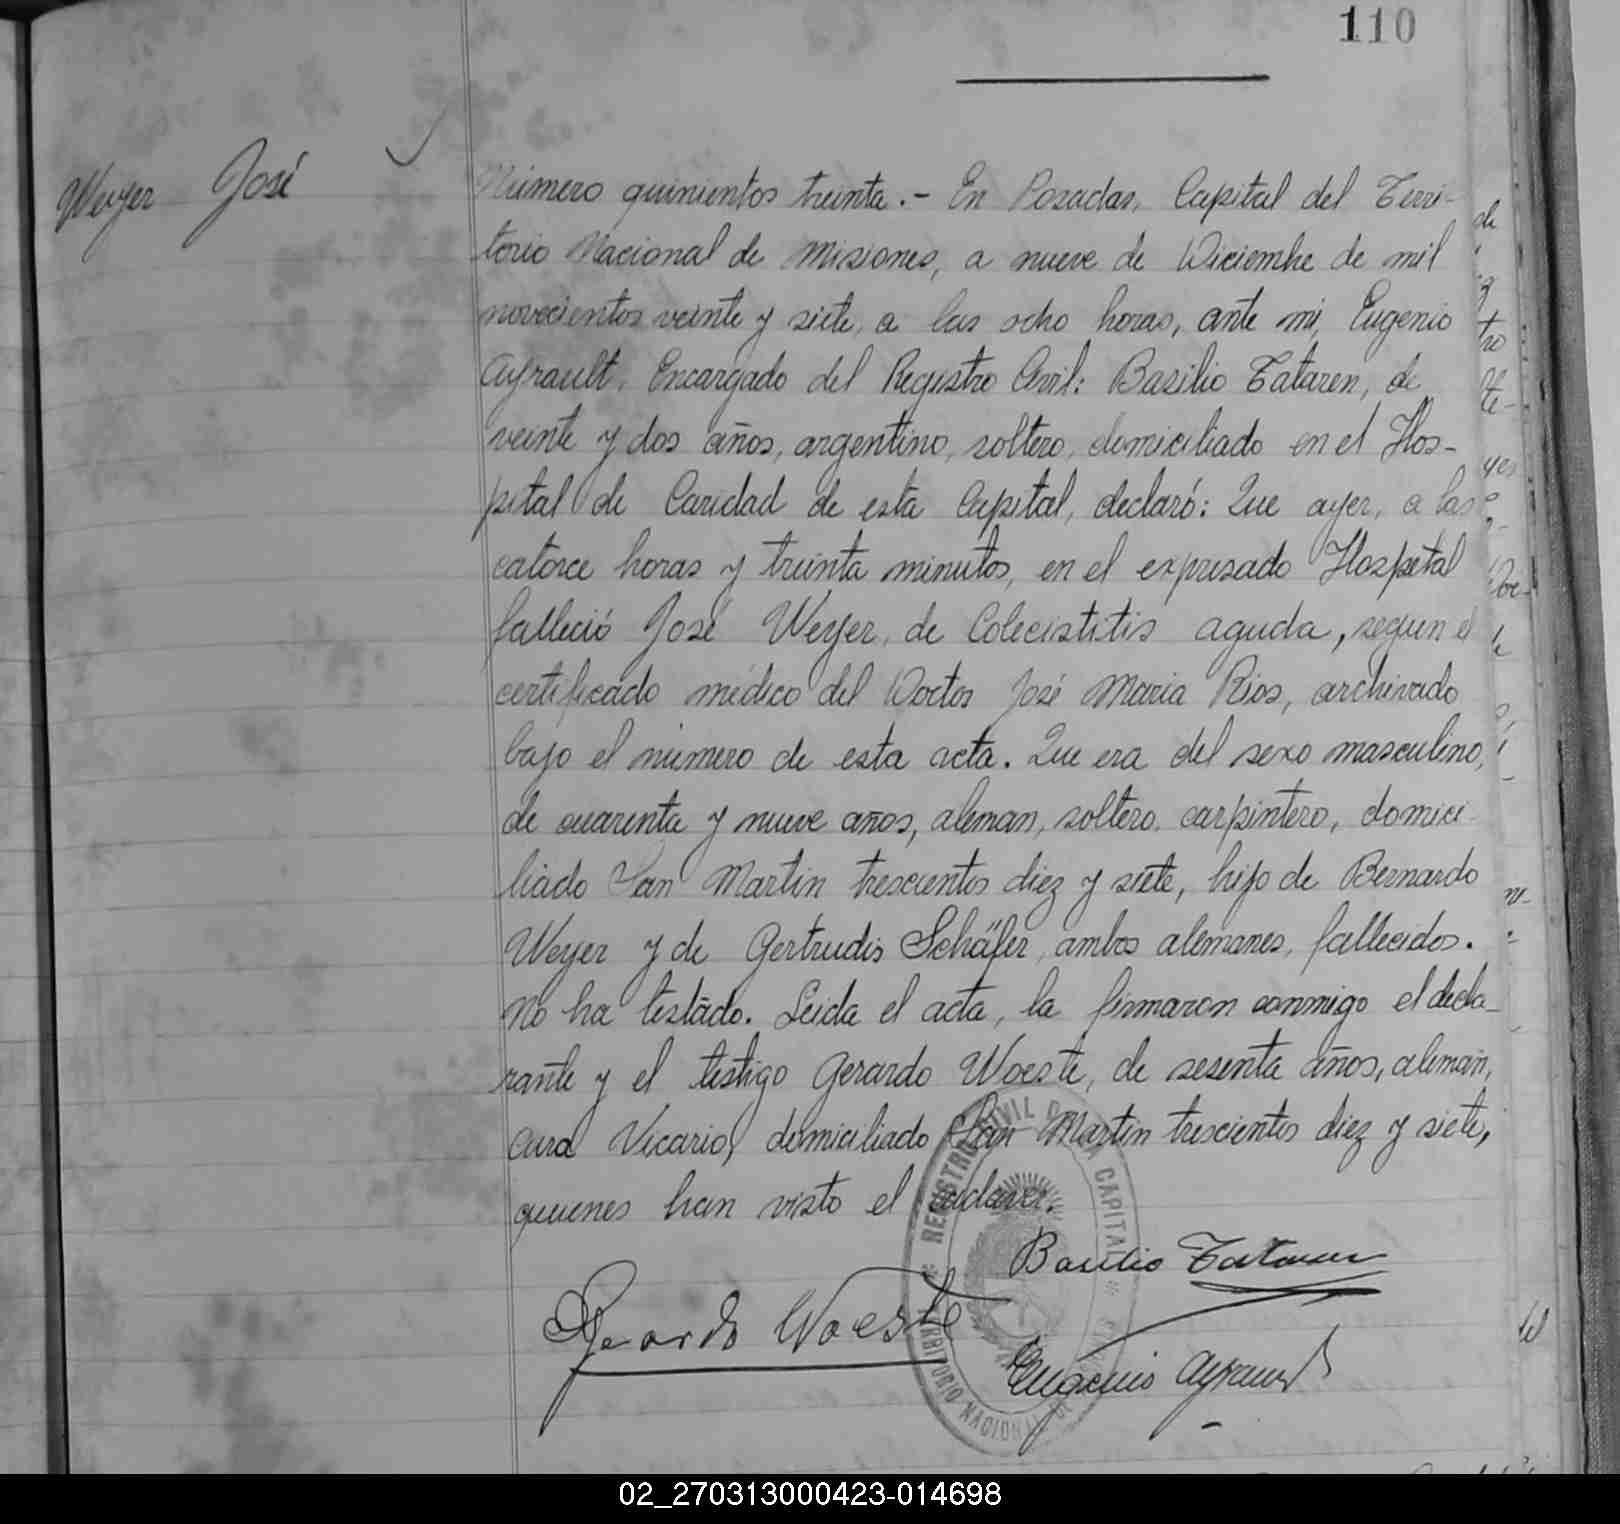 110
Weyer José
Número quinientos treinta.- En Posadas, Capital del Terri-
torio Nacional de Misiones, a nueve de Diciembre de mil
novecientos veinte y siete, a las ocho horas, ante mi, Eugenio
Ayrault, Encargado del Registro Civil: Basilio Tataren, de
veinte y dos años, argentino, soltero, domiciliado en el Hos-
pital de Caridad de esta Capital, declaró: Que ayer, a las
catorce horas y treinta minutos, en el expresado Hospital
falleció José Weyer, de Colecistitis aguda, segun el
certificado médico del Doctor José Maria Rios, archivado
bajo el número de esta acta. Que era del sexo masculino,
de cuarenta y nueve años, aleman, soltero, carpintero, domici-
liado San Martin trescientos diez y siete, hijo de Bernardo
Weyer y de Gertrudis Schäfer, ambos alemanes, fallecidos.
No ha testado. Leida el acta, la firmaron conmigo el decla-
rante y el testigo Gerardo Woeste, de sesenta años, aleman,
Cura Vicario, domiciliado San Martin trescientos diez y siete,
quienes han visto el cadaver.
Basilio Tataren
Gerardo Woeste
Eugenio Ayrault
REGISTRO CIVIL DE LA CAPITAL
TERRITORIO NACIONAL DE MISIONES
02_270313000423-014698